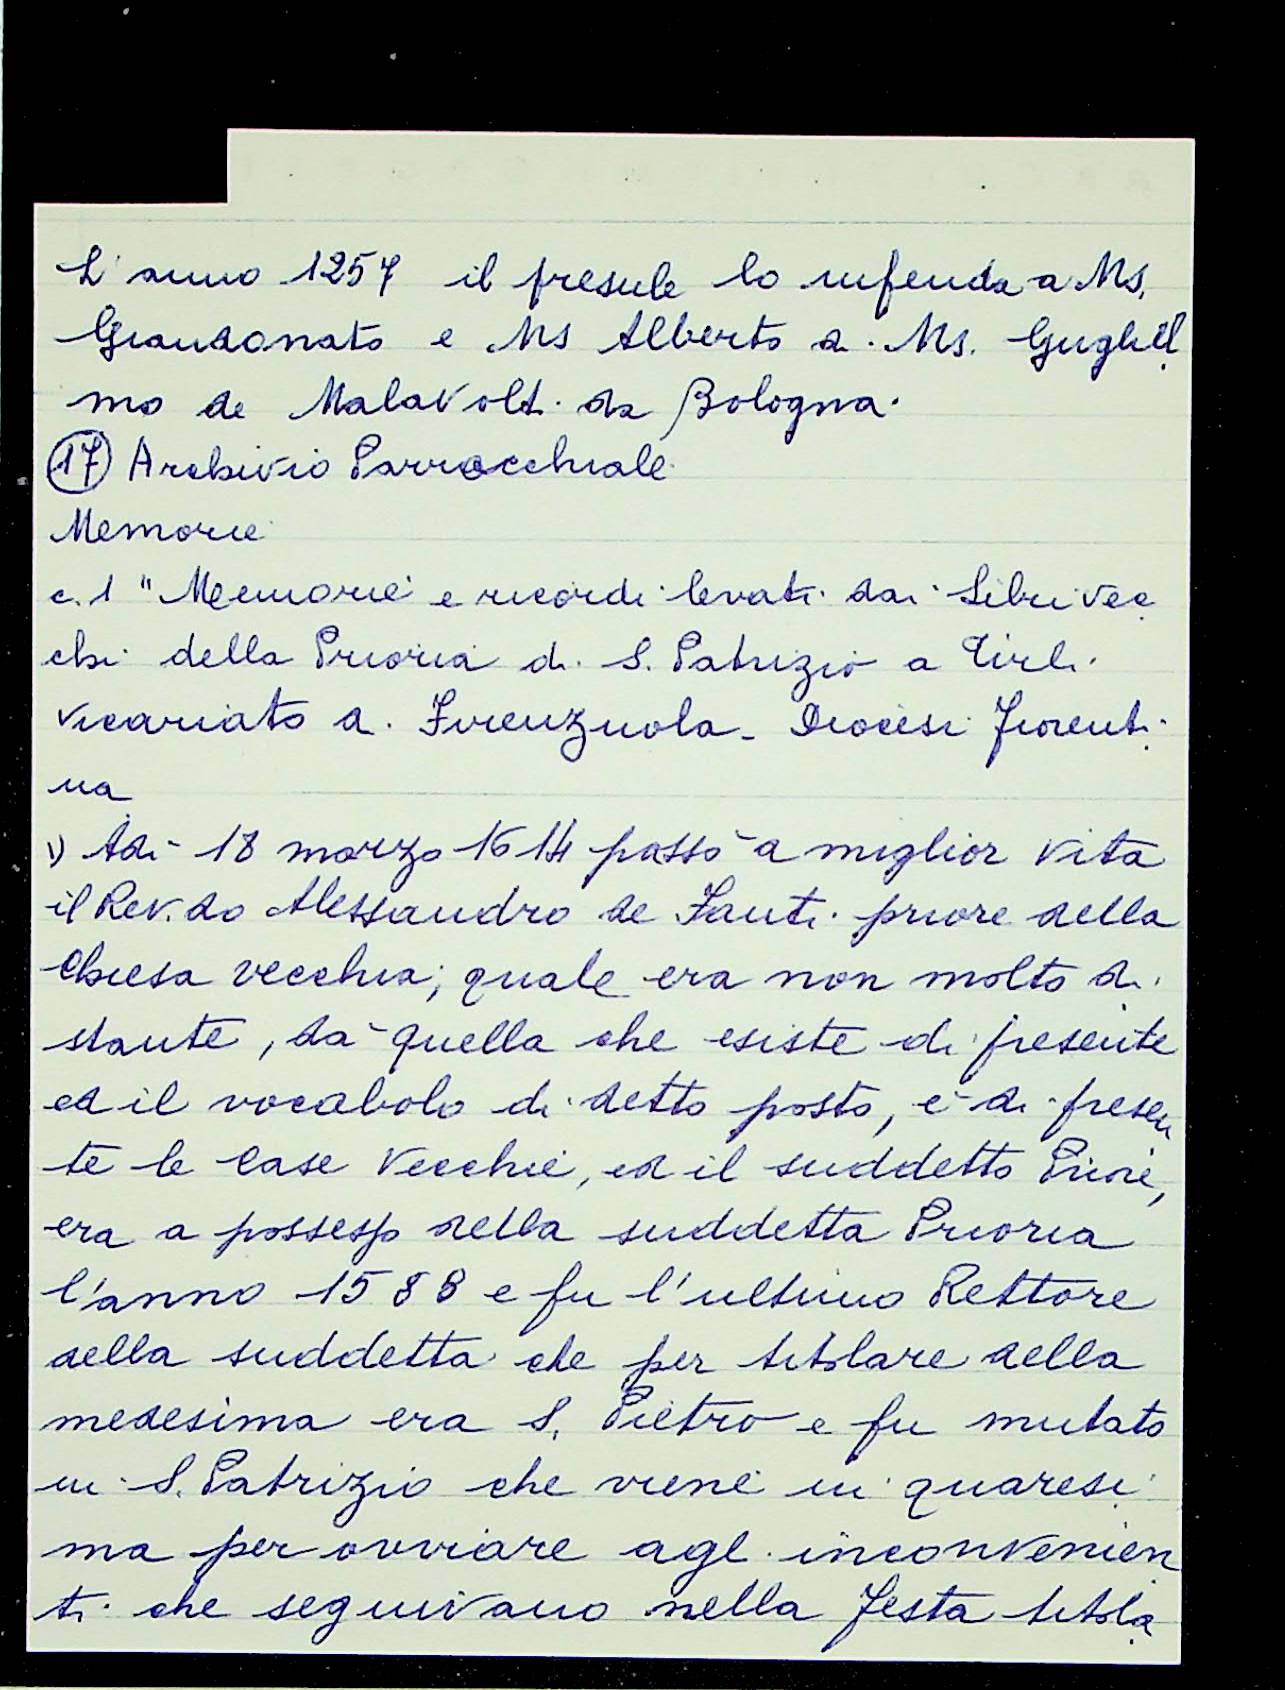 L'anno 1257 il presule lo infeuda a Ms.
Giandonato e Ms Alberto di Ms. Gugliel
mo de Malavolti da Bologna.
17 Archivio Parrocchiale
Memorie
c. 1 "Memorie e ricordi levati dai Libri vec
chi della Prioria di S. Patrizio a Tirli
Vicariato di Firenzuola - Diocesi Fiorenti
na
1) Adi 18 marzo 1614 passò a miglior vita
il Rev.do Alessandro de Santi priore della
Chiesa vecchia; quale era non molto di
stante, da quella che esiste di presente
ed il vocabolo di detto posto, è di presen
te le Case Vecchie, ed il suddetto Priore,
era a possesso della suddetta Prioria
l'anno 1588 e fu l'ultimo Rettore
della suddetta che per titolare della
medesima era S. Pietro e fu mutato
in S. Patrizio che viene in quaresi
ma per ovviare agli inconvenien
ti che seguivano nella festa titola